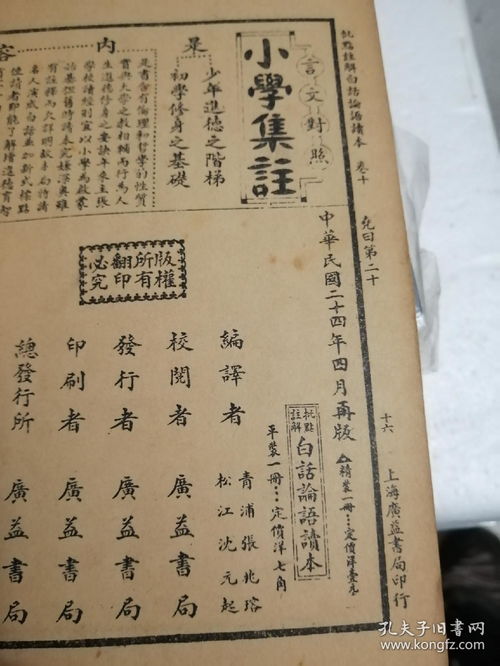 批點註解白話論語讀本 卷十
堯曰第二十
十六
上海廣益書局印行
言文對照
小學集註
是
內
容
少年進德之階梯
初學修身之基礎
是書含有倫理和哲學的性質
實與大學之教相輔而行為人
生進德修身之要訣年來主張
學校讀經則宜以小學為啟蒙
版權所有
翻印必究
中華民國二十四年四月再版
批點註解
白話論語讀本
精裝一冊…定價洋壹元
平裝一冊…定價洋七角
編譯者 青浦張兆瑢
松江沈元起
校閱者 廣益書局
發行者 廣益書局
印刷者 廣益書局
總發行所 廣益書局
孔夫子旧书网
www.kongfz.com